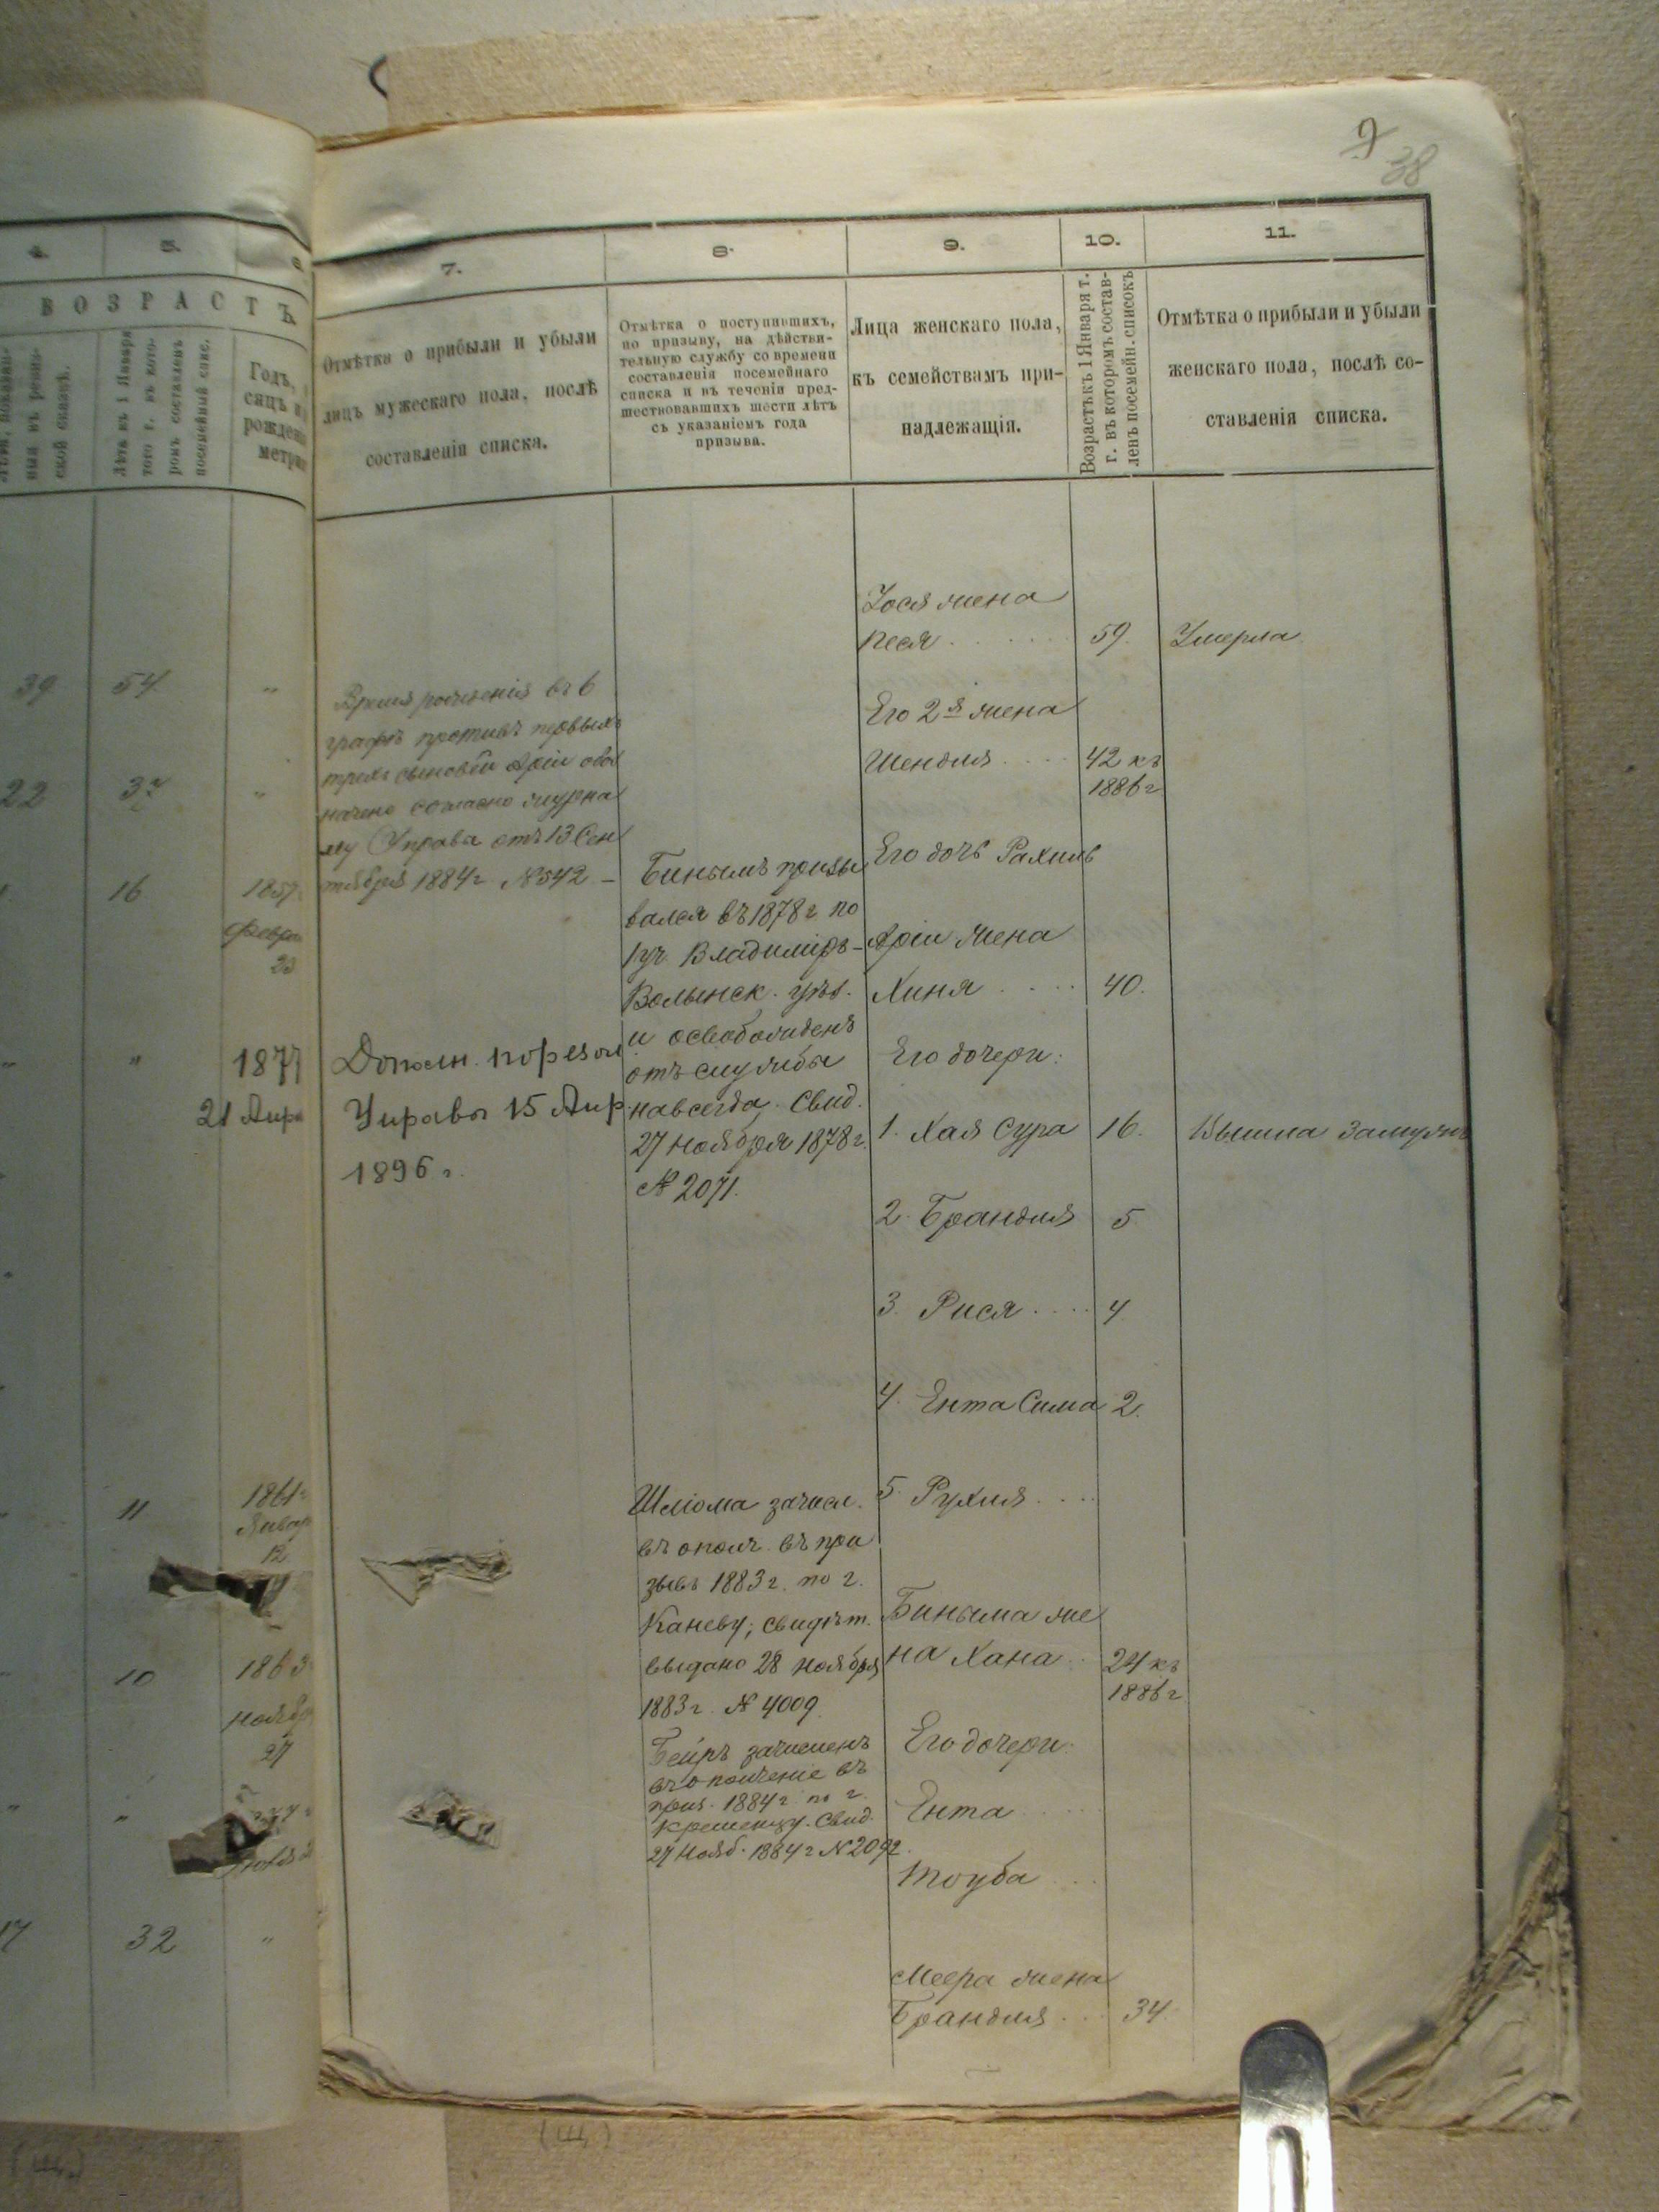 9
38
4.
5.
6
ВОЗРАСТЪ.
Лѣта къ 1 Января
того г. въ кото-
ромъ составленъ
посемейный спис.
Годъ,
сяцъ и
рожден
метри
39
54
"
22
37
"
16
1857
Февра
23
"
"
1877
21 Апр
11
1861 г.
Январ
12
10
1863
Ноябр
27
"
"
17
32
"
7.
Отмѣтка о прибыли и убыли
лицъ мужескаго пола, послѣ
составленія списка.
Время рожденія въ 6
графѣ противъ первыхъ
трехъ сыновей Арiи обоз
начено согласно журна
лу Управы отъ 13 Сен
тября 1884 г. № 542 –
Дополн. по резол
Управы 15 Апр.
1896 г.
8.
Отмѣтка о поступившихъ,
по призыву, на дѣйстви-
тельную службу со времени
составленія посемейнаго
списка и въ теченіи пред-
шествовавшихъ шести лѣтъ
съ указаніемъ года
призыва.
Биньымъ призы
вался въ 1878 г. по
1 уч. Владимiръ-
Волынск. уѣз.
и освобожденъ
отъ службы
навсегда. Свид.
27 Ноября 1878 г.
№ 2071.
Шліома зачисл.
въ ополч. въ при
зывъ 1883 г. по г.
Каневу; свидѣт.
выдано 28 Ноября
1883 г. № 4009.
Бейръ зачисленъ
въ ополченіе въ
приз. 1884 г. по г.
Кременцу. Свид.
27 Нояб. 1884 г. № 2092.
9.
Лица женскаго пола,
къ семействамъ при-
надлежащія.
Іося жена
Песя
Его 2я жена
Шендля
Его дочь Рахиль
Арiи жена
Хиня
Его дочери:
1. Хая Сура
2. Брандля
3. Рися
4. Ента Сима
5. Рухля
Биньыма же
на Хана
Его дочери:
Ента
Тоуба
Меера жена
Брандля
10.
Возрастъ къ 1 Января т.
г. въ которомъ состав-
ленъ посемейн. списокъ
59.
42 къ
1886 г.
40.
16.
5
4
2.
24 къ
1886 г.
34.
11.
Отмѣтка о прибыли и убыли
женскаго пола, послѣ со-
ставленія списка.
Умерла
Вышла замужъ
(щ)